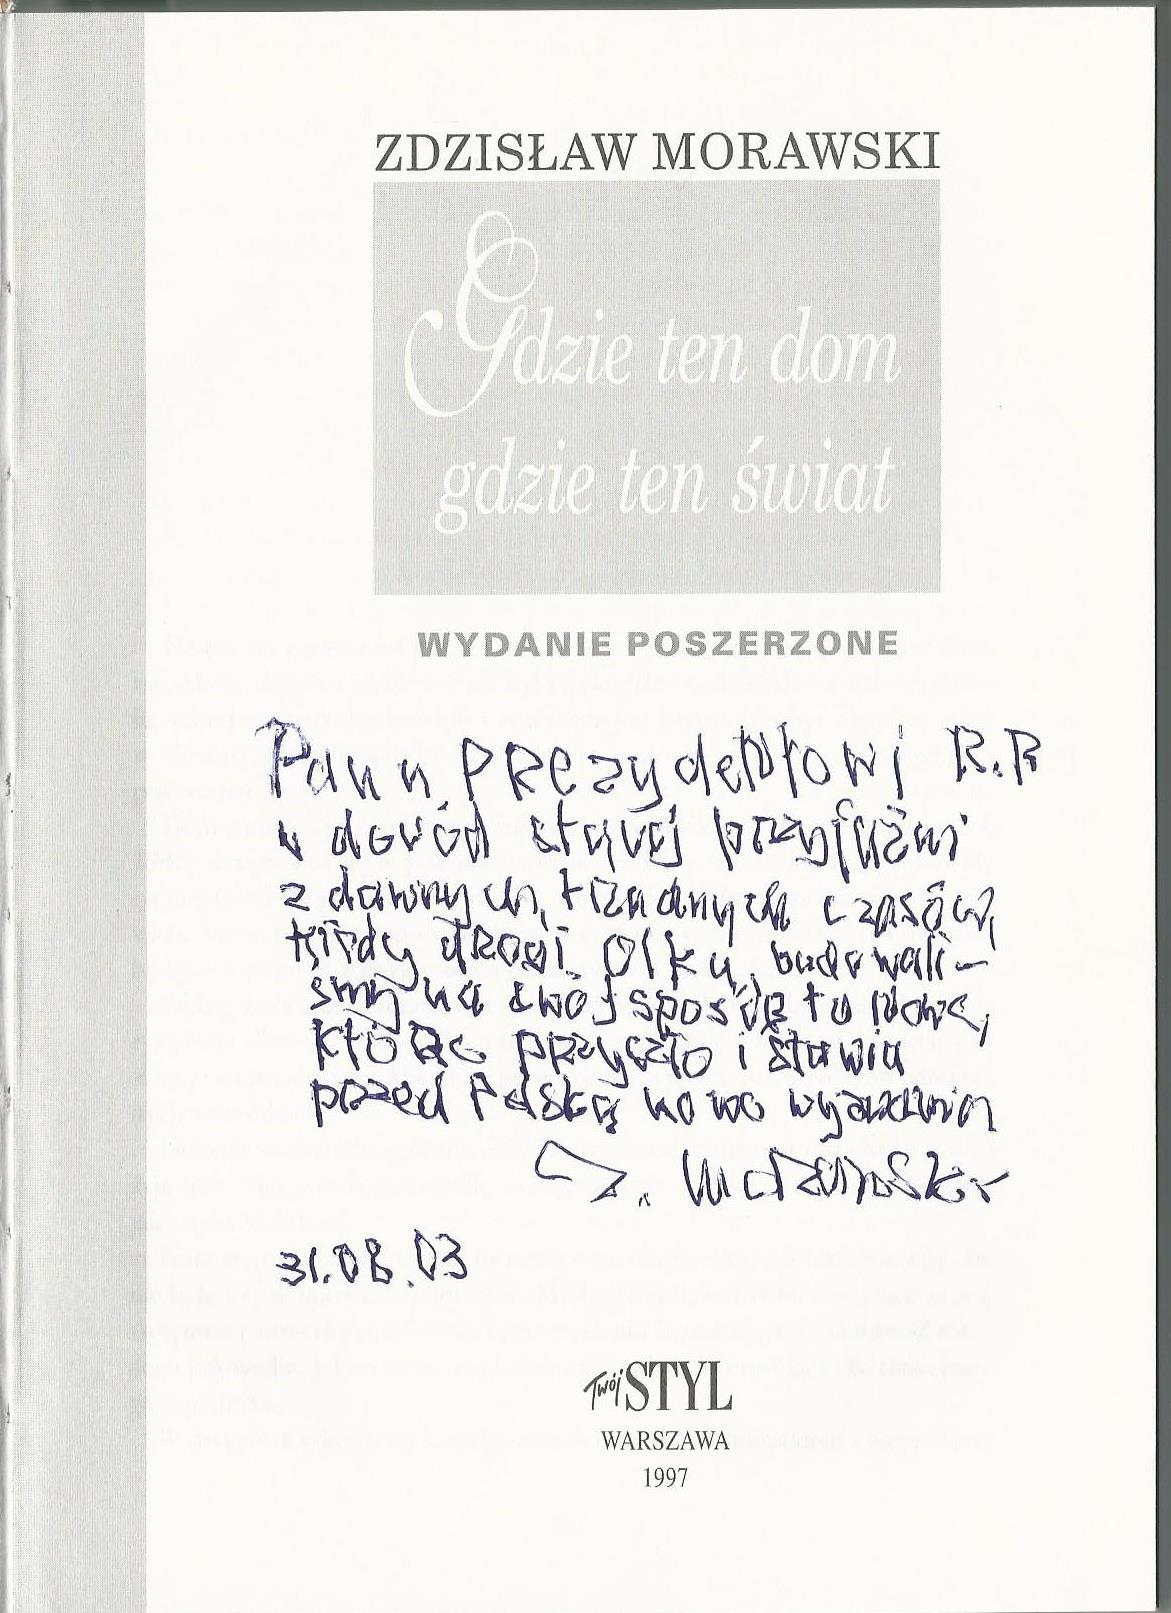 ZDZISŁAW MORAWSKI
Gdzie ten dom
gdzie ten świat
WYDANIE POSZERZONE
Panu Prezydentowi R.P
w dowód starej przyjaźni
z dawnych, trudnych czasów,
kiedy drogi Olku, budowali-
śmy na swój sposób to nowe,
które przyszło i stawia
przed Polską nowe wyzwania
Z. Morawski
31.08.03
Twój STYL
WARSZAWA
1997